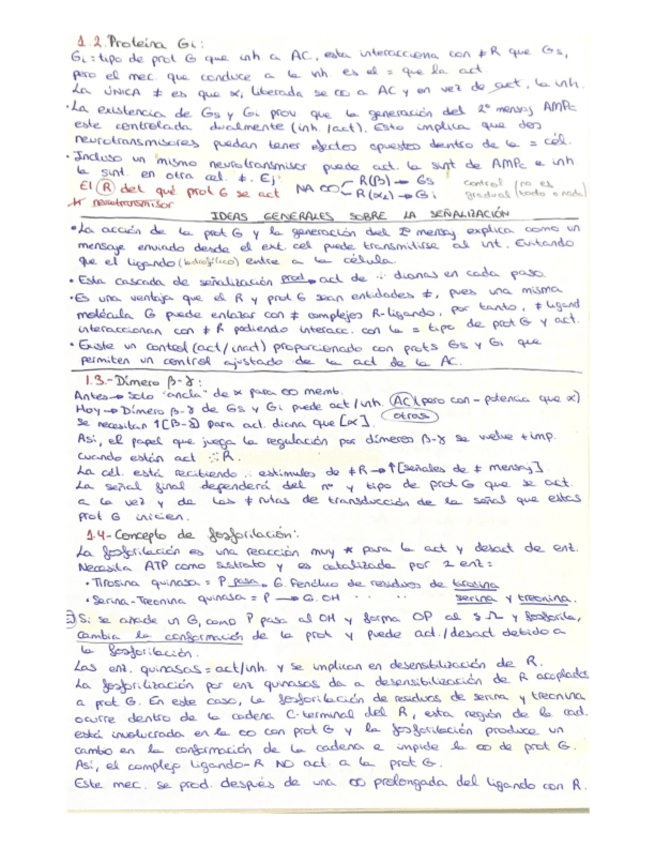 1.2. Proteína Gi:
Gi = tipo de prot G que inh a AC, esta interacciona con ≠ R que Gs,
pero el mec. que conduce a la inh es el = que la act.
La ÚNICA ≠ es que α, liberada se ∞ a AC y en vez de act, la inh.
• La existencia de Gs y Gi prov que la generación del 2º mensaj AMPc
este controlada dualmente (inh./act). Esto implica que dos
neurotransmisores puedan tener efectos opuestos dentro de la = cél.
• Incluso un mismo neurotransmisor puede act. la sint de AMPc e inh
la sint. en otra cel. ≠. Ej:
El R del qué prot G se act NA ∞ R(β) → Gs
R(α2) → Gi
control (no es
gradual todo o nada)
neurotransmisor
IDEAS GENERALES SOBRE LA SEÑALIZACIÓN
• La acción de la prot G y la generación del 2º mensaj explica como un
mensaje enviado desde el ext. cel puede transmitirse al int. Evitando
que el ligando (hidrofílico) entre a la célula.
• Esta cascada de señalización prod→ act de ∴ dianas en cada paso.
• Es una ventaja que el R y prot G sean entidades ≠, pues una misma
molécula G puede enlazar con ≠ complejos R-ligando, por tanto, ≠ ligand
interaccionan con ≠ R pudiendo interacc. con la = tipo de prot G y act.
• Existe un control (act/inact) proporcionado con prots Gs y Gi que
permiten un control ajustado de la act de la AC.
1.3.- Dímero β-γ:
Antes → solo "ancla" de α para ∞ memb.
Hoy → Dímero β-γ de Gs y Gi puede act/inh. AC (pero con - potencia que α)
otras
Se necesitan ↑[β-γ] para act. diana que [α].
Asi, el papel que juega la regulación por dímeros β-γ se vuelve + imp.
cuando están act ∴ R.
La cél. está recibiendo ∴ estímulos de ≠ R → ↑[señales de ≠ mensaj].
La señal final dependerá del nº y tipo de prot G que se act.
a la vez y de las ≠ rutas de transducción de la señal que estas
prot G inicien.
1.4- Concepto de fosforilación:
La fosforilación es una reacción muy * para la act y desact de enz.
Necesita ATP como sustrato y es catalizada por 2 enz:
• Tirosina quinasa = P pasa→ G. Fenólico de residuos de tirosina
• Serina-Treonina quinasa = P → G. OH " " " serina y treonina.
Si se añade un G, como P pasa al OH y forma OP al s y fosforila,
cambia la conformación de la prot y puede act./desact debido a
la fosforilación.
Las enz. quinasas = act/inh. y se implican en desensibilización de R.
La fosforilización por enz quinasas da a desensibilización de R acoplados
a prot G. En este caso, la fosforilación de residuos de serina y treonina
ocurre dentro de la cadena C-terminal del R, esta región de la cad.
está involucrada en la ∞ con prot G y la fosforilación produce un
cambio en la conformación de la cadena e impide la ∞ de prot G.
Asi, el complejo ligando-R NO act. a la prot G.
Este mec. se prod. después de una ∞ prolongada del ligando con R.